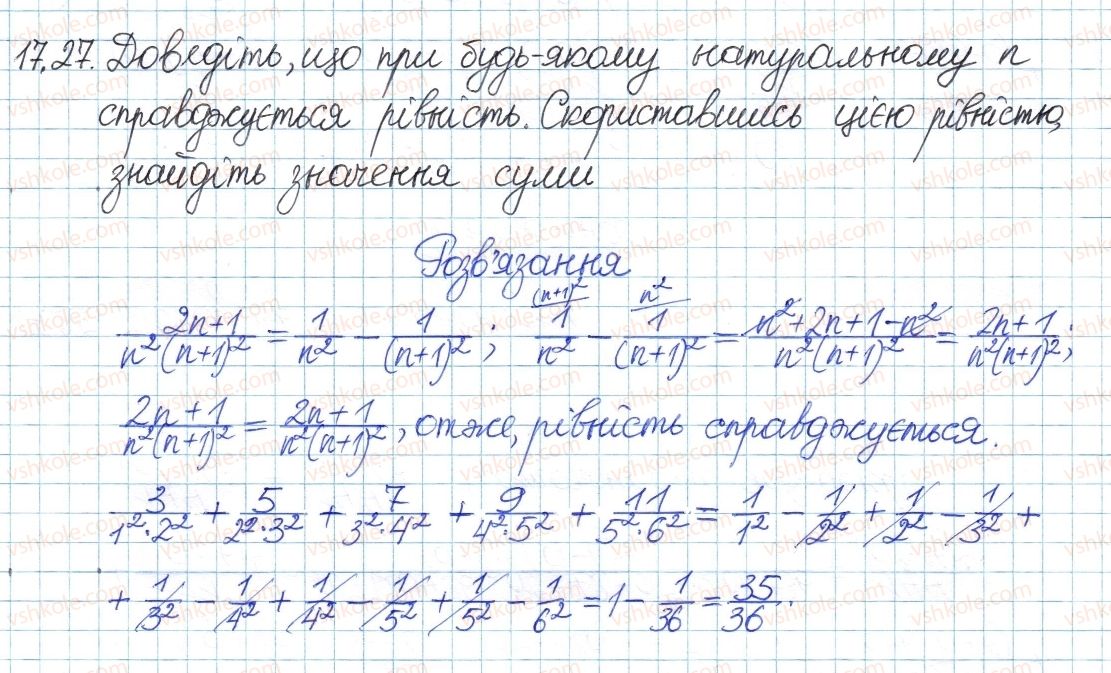 17.27. Доведіть, що при будь-якому натуральному n
справджується рівність. Скориставшись цією рівністю,
знайдіть значення суми
Розв'язання
2n+1/n²(n+1)² = 1/n² − 1/(n+1)²; (n+1)²/1/n² − n²/1/(n+1)² = n²+2n+1−n²/n²(n+1)² = 2n+1/n²(n+1)²;
2n+1/n²(n+1)² = 2n+1/n²(n+1)², отже, рівність справджується.
3/1²·2² + 5/2²·3² + 7/3²·4² + 9/4²·5² + 11/5²·6² = 1/1² − 1/2² + 1/2² − 1/3² +
+ 1/3² − 1/4² + 1/4² − 1/5² + 1/5² − 1/6² = 1 − 1/36 = 35/36.
vshkole.com